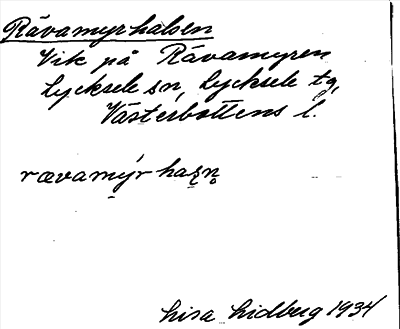 Rävamyrhalsen
Vik på Rävamyren
Lycksele sn, Lycksele tg,
Västerbottens l.
rævamý̨r has̨n̥
Lisa Lidberg 1934